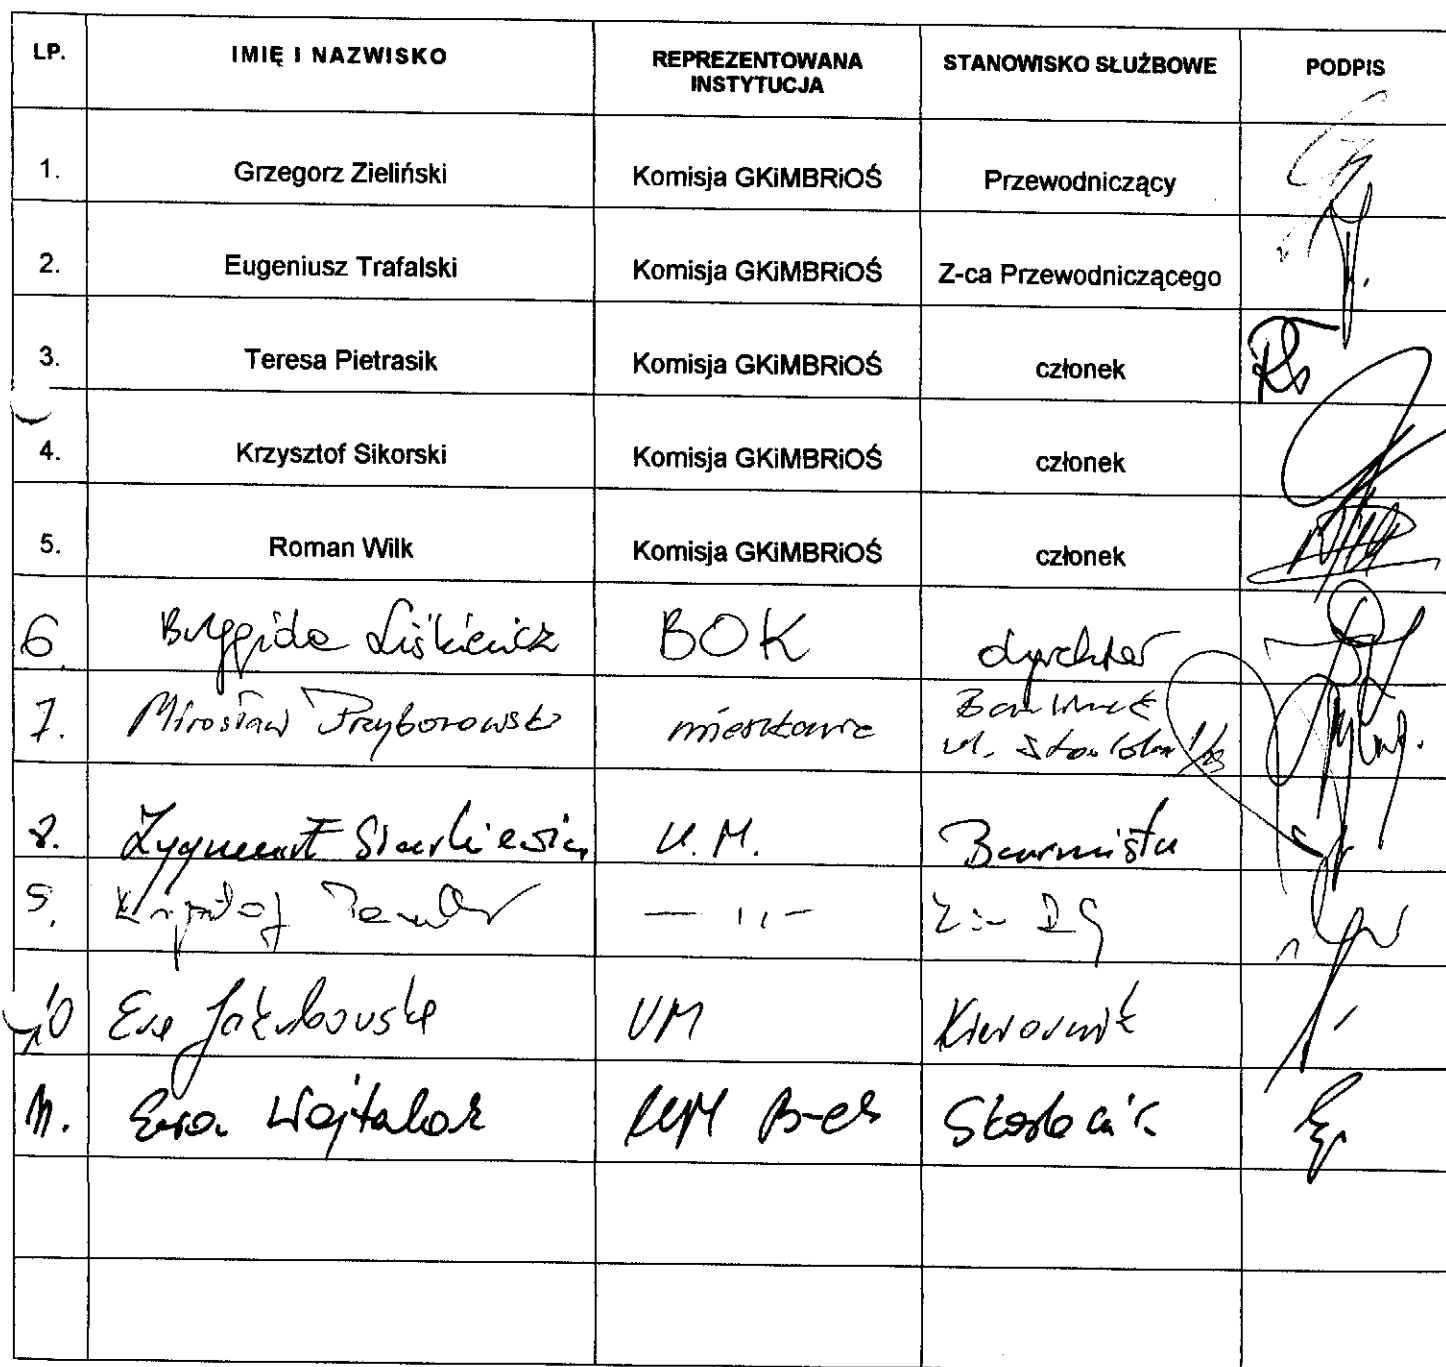 LP. IMIĘ I NAZWISKO REPREZENTOWANA INSTYTUCJA STANOWISKO SŁUŻBOWE PODPIS
1. Grzegorz Zieliński Komisja GKiMBRiOŚ Przewodniczący
2. Eugeniusz Trafalski Komisja GKiMBRiOŚ Z-ca Przewodniczącego
3. Teresa Pietrasik Komisja GKiMBRiOŚ członek
4. Krzysztof Sikorski Komisja GKiMBRiOŚ członek
5. Roman Wilk Komisja GKiMBRiOŚ członek
6. Liśkiewicz BOK dyrektor
7. Mirosław Przyborowski ul.
8. Zygmunt U.M. Burmistrz
9. Krzysztof — 11 —
10 Ewa Jakubowska UM Kierownik
11. Ewa Wojtalak UM